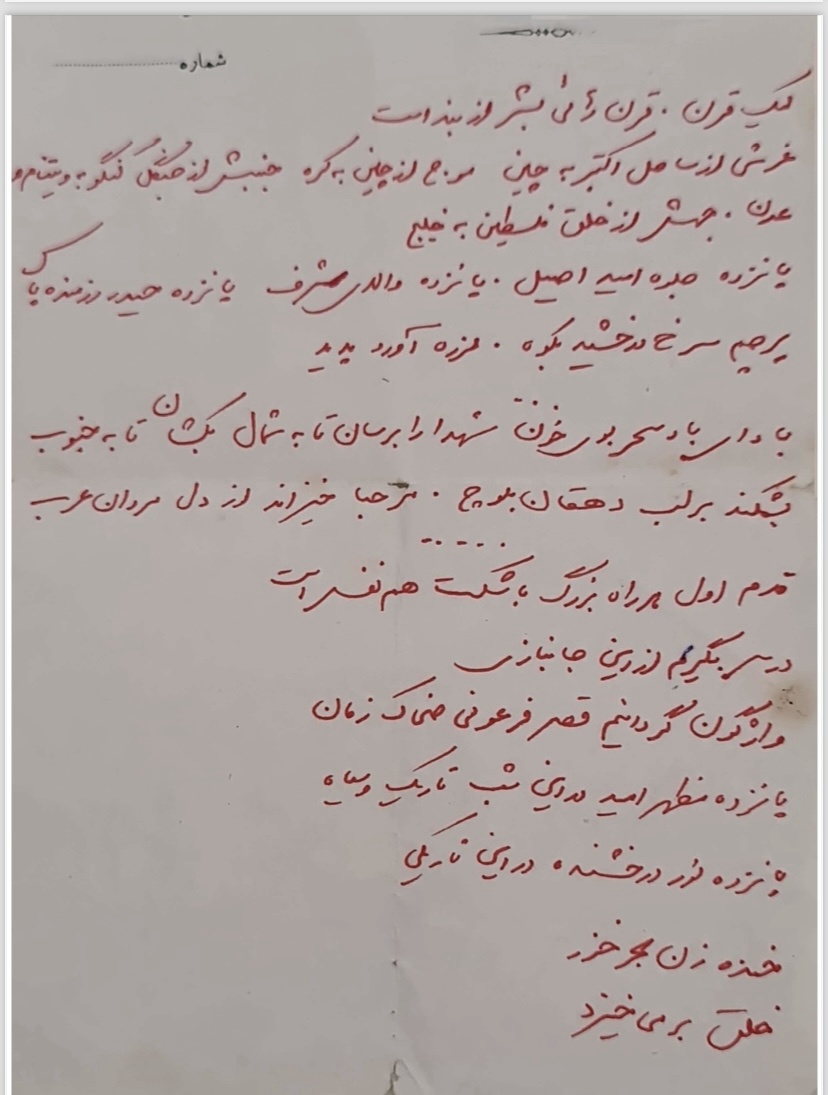 شماره
یک قرن . قرن رهائی بشر از بند است
غرشی از ساحل اکتبر به چین موج از چین به کره جنبش از جنگل کنگو به ویتنام و
عدن . جهش از خلق فلسطین به خلیج
پانزده جلوه امید اصیل . پانزده والای شرف پانزده حیدر رزمنده پاک
پرچم سرخ درخشید بکوه . مزده آورد پدید
باد ای باد سحر بوی خون شهدا را برسان تا به شمال بکشان تا به جنوب
بشکند بر لب دهقان بلوچ . مرحبا خیزاند از دل مردان عرب
.....
قدم اول هر راه بزرگ با شکست هم نفس است
درس بگیریم از این جانبازی
واژگون گردانیم قصر فرعونی ضحاک زمان
پانزده مظهر امید در این شب تاریک و سیاه
پانزده نور درخشنده در این تاریکی
خنده زن بحر خزر
خلق بر می خیزد